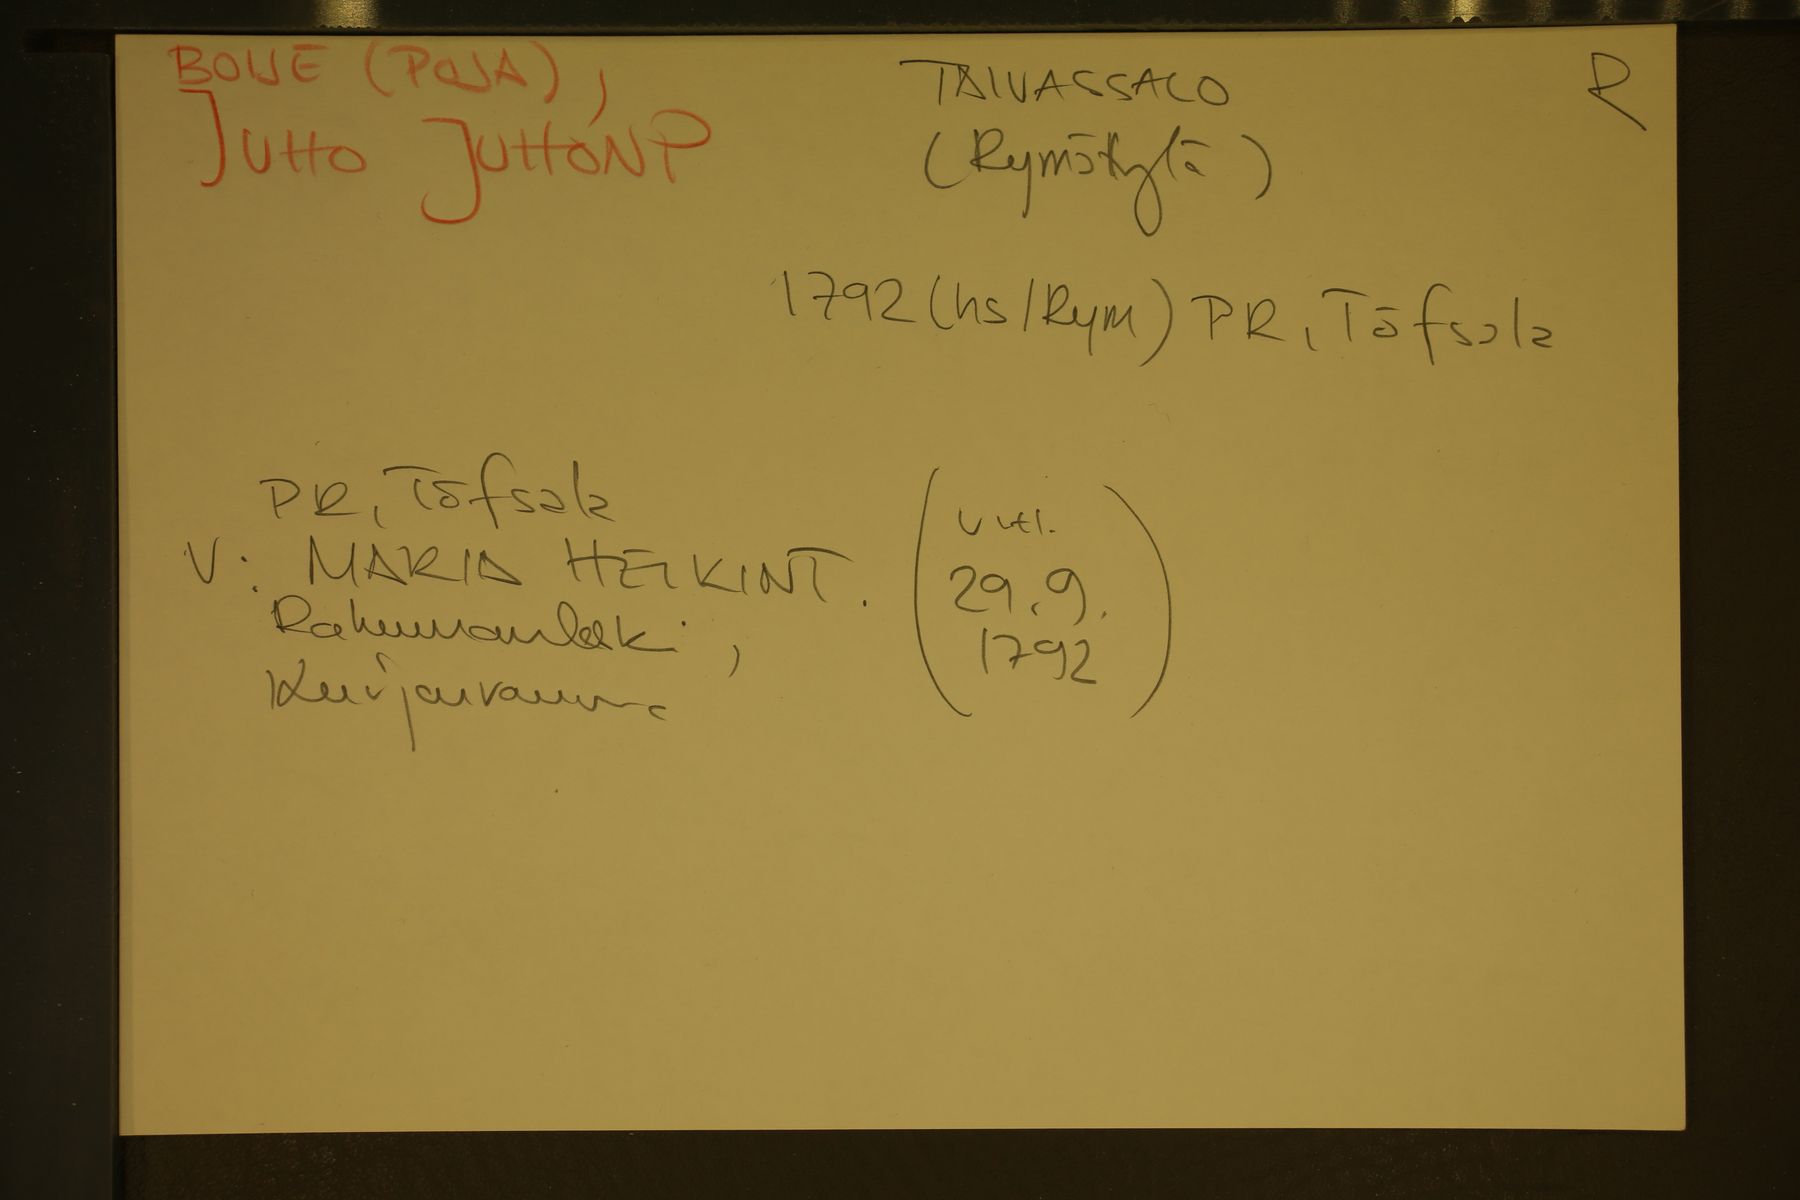 BOIJE (POIJA),
JUTTO JUTTONP
TAIVASSALO
(Rymättylä)
R
1792 (hs/Rym) PR, Töfsala
PR, Töfsala
V: MARIA HEIKINT.
Rahumanlaki,
(vihl.
29.9.
1792)